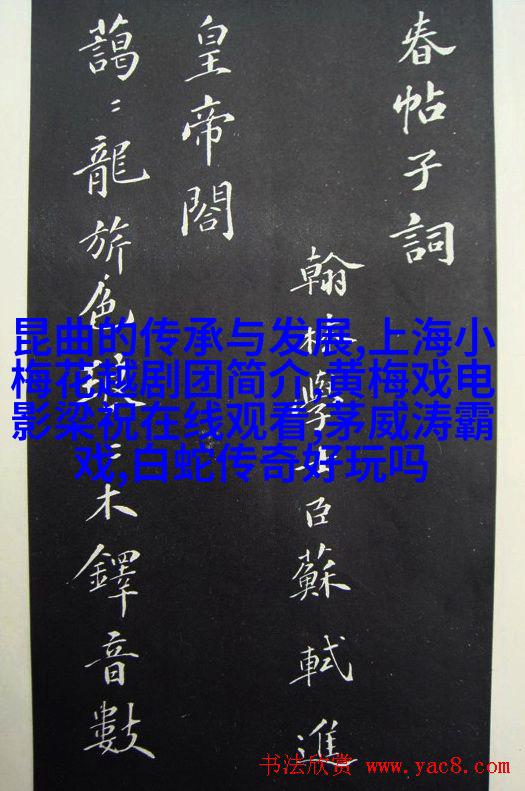 春帖子詞
翰林學士臣蘇軾進
皇帝閣
藹〻龍旂色琅〻木鐸音數
昆曲的传承与发展,上海小
梅花越剧团简介,黄梅戏电
影梁祝在线观看,茅威涛霸
戏,白蛇传奇好玩吗
书法欣赏 www.yac8.com